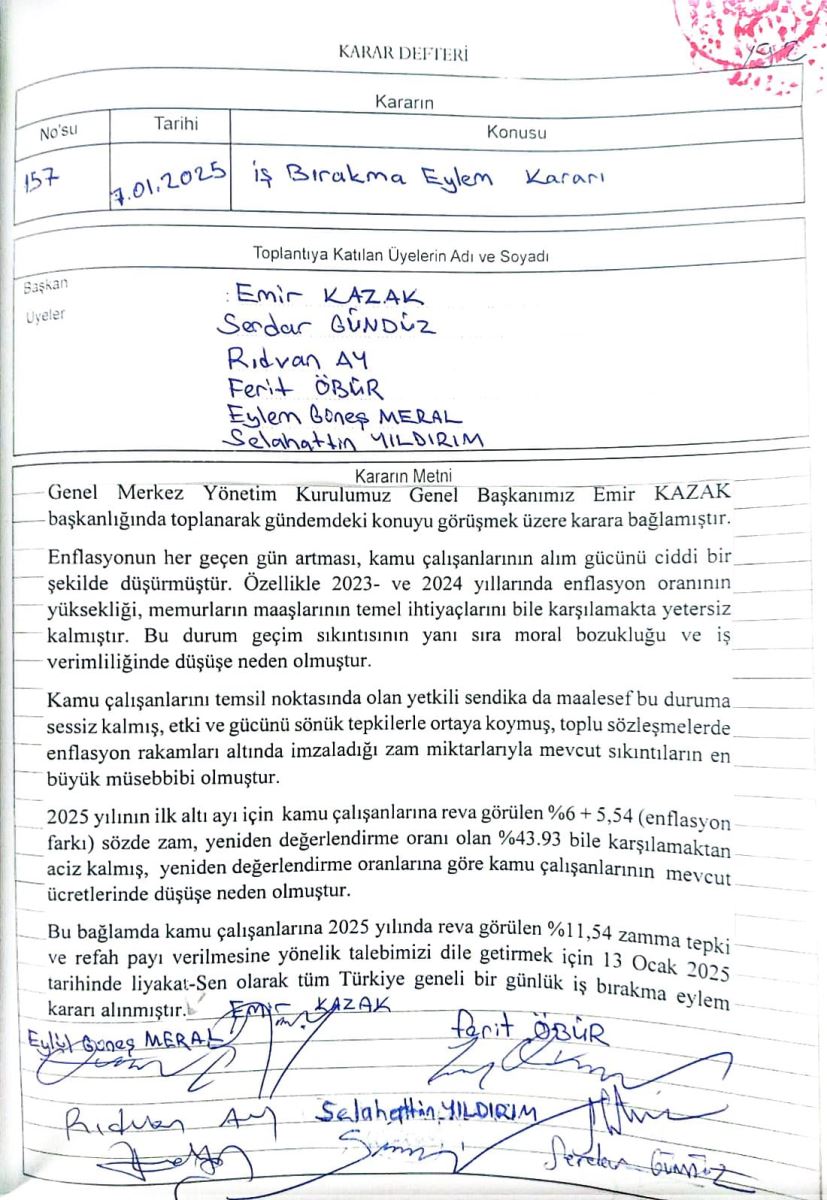 192
KARAR DEFTERİ
Kararın
No'su
Tarihi
Konusu
157
7.01.2025
İş Bırakma Eylem Kararı
Toplantıya Katılan Üyelerin Adı ve Soyadı
Başkan
: Emir KAZAK
Üyeler
Serdar GÜNDÜZ
Rıdvan AY
Ferit ÖBÜR
Eylem Güneş MERAL
Selahattin YILDIRIM
Kararın Metni
Genel Merkez Yönetim Kurulumuz Genel Başkanımız Emir KAZAK
başkanlığında toplanarak gündemdeki konuyu görüşmek üzere karara bağlamıştır.
Enflasyonun her geçen gün artması, kamu çalışanlarının alım gücünü ciddi bir
şekilde düşürmüştür. Özellikle 2023- ve 2024 yıllarında enflasyon oranının
yüksekliği, memurların maaşlarının temel ihtiyaçlarını bile karşılamakta yetersiz
kalmıştır. Bu durum geçim sıkıntısının yanı sıra moral bozukluğu ve iş
verimliliğinde düşüşe neden olmuştur.
Kamu çalışanlarını temsil noktasında olan yetkili sendika da maalesef bu duruma
sessiz kalmış, etki ve gücünü sönük tepkilerle ortaya koymuş, toplu sözleşmelerde
enflasyon rakamları altında imzaladığı zam miktarlarıyla mevcut sıkıntıların en
büyük müsebbibi olmuştur.
2025 yılının ilk altı ayı için kamu çalışanlarına reva görülen %6 + 5,54 (enflasyon
farkı) sözde zam, yeniden değerlendirme oranı olan %43.93 bile karşılamaktan
aciz kalmış, yeniden değerlendirme oranlarına göre kamu çalışanlarının mevcut
ücretlerinde düşüşe neden olmuştur.
Bu bağlamda kamu çalışanlarına 2025 yılında reva görülen %11,54 zamma tepki
ve refah payı verilmesine yönelik talebimizi dile getirmek için 13 Ocak 2025
tarihinde liyakat-Sen olarak tüm Türkiye geneli bir günlük iş bırakma eylem
kararı alınmıştır.
Emir KAZAK
Güneş MERAL
Ferit ÖBÜR
Rıdvan AY
Selahattin YILDIRIM
Serdar GÜNDÜZ